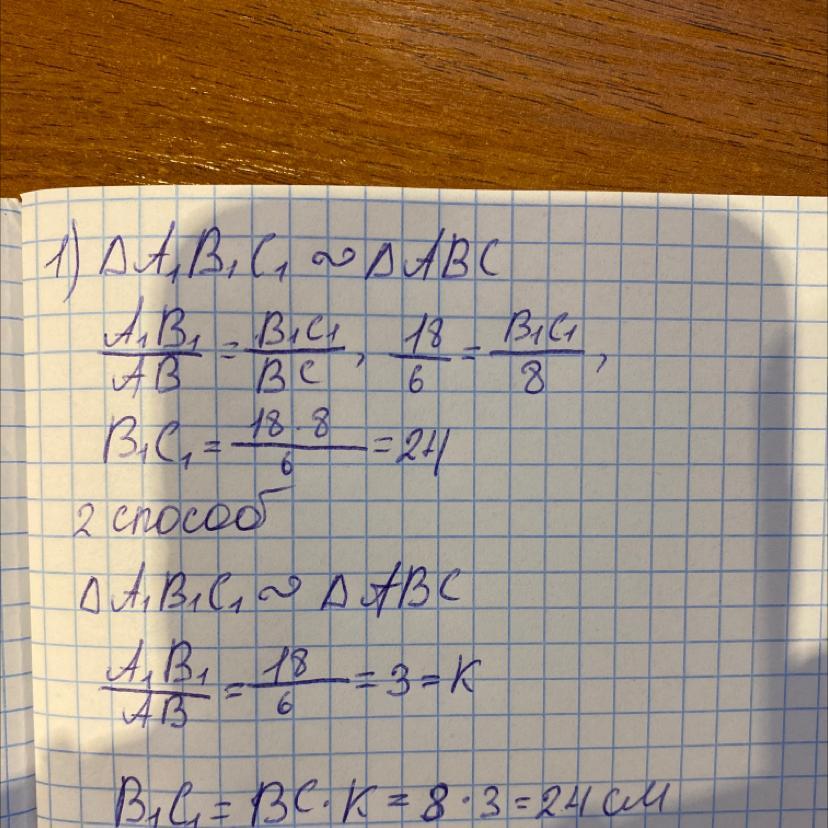 1) Δ A₁B₁C₁ ∾ Δ ABC
A₁B₁/AB = B₁C₁/BC, 18/6 = B₁C₁/8,
B₁C₁ = 18·8/6 = 24
2 способ
Δ A₁B₁C₁ ∾ Δ ABC
A₁B₁/AB = 18/6 = 3 = K
B₁C₁ = BC·K = 8·3 = 24 см